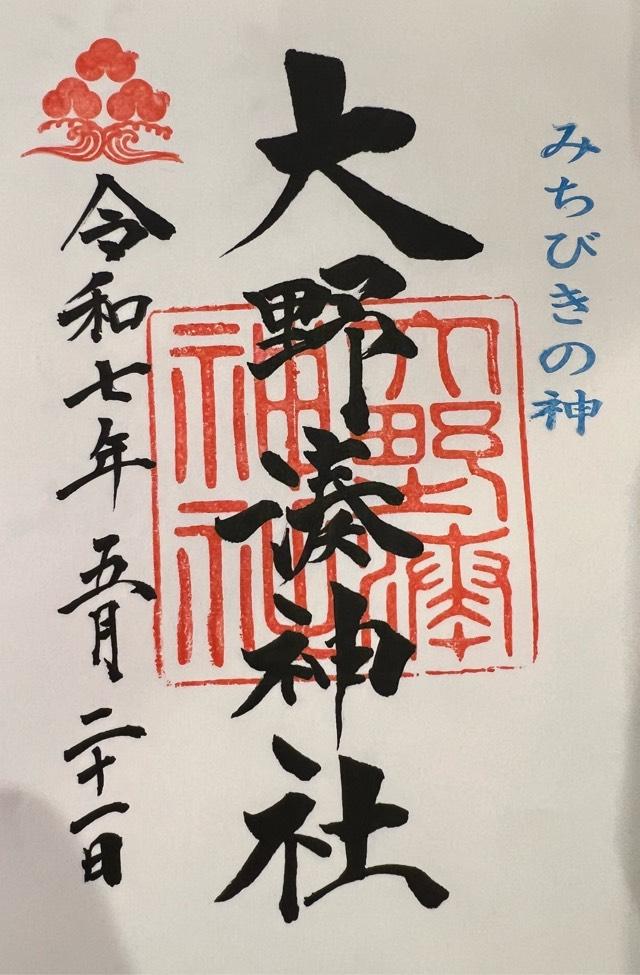 みちびきの神
大野湊神社
大野湊神社
令和七年五月二十一日